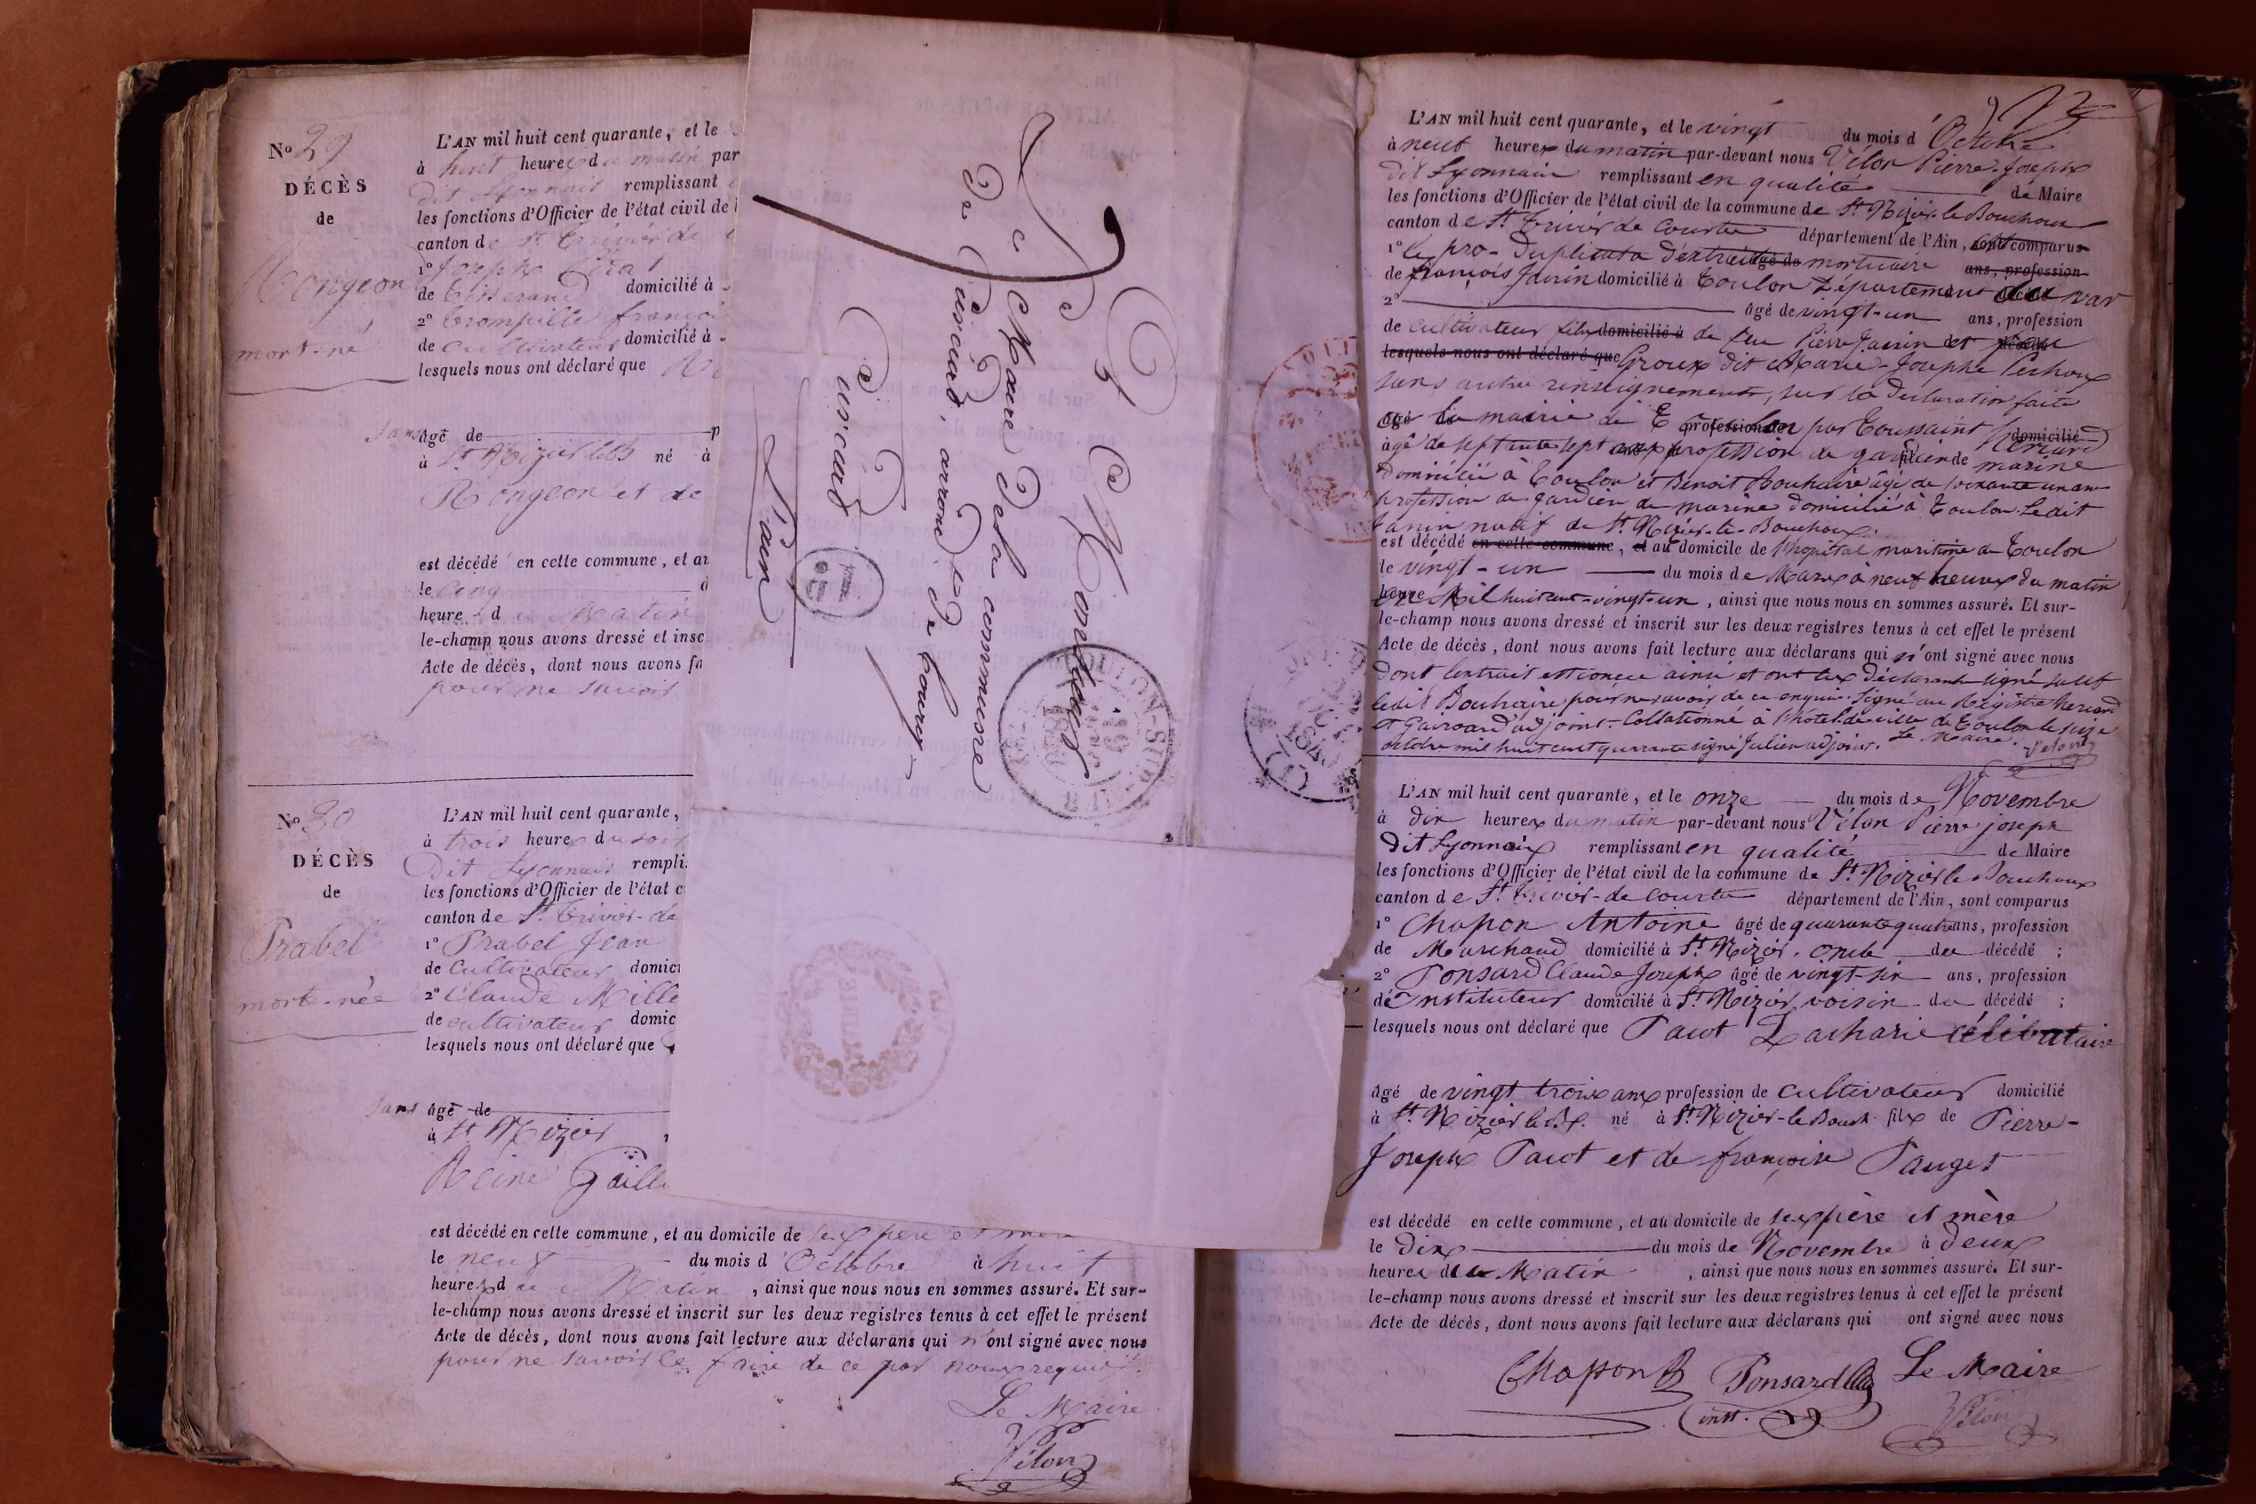 No 29
DÉCÈS
de
Rongeon
mort-né
L'AN mil huit cent quarante, et le
à huit heures du matin par
dit Lyonnais remplissant
les fonctions d'Officier de l'état civil de
canton de St Trivier de
1° Joseph
de tisserand domicilié à
2° Trompille françois
de cultivateur domicilié à
lesquels nous ont déclaré que
Sans âgé de
à St Nizier né à
Rongeon et de
est décédé en cette commune, et au
le cinq
heure du Matin
le-champ nous avons dressé et insc
Acte de décès, dont nous avons fa
pour ne savoir
No 30
DÉCÈS
de
Prabel
morte-née
L'AN mil huit cent quarante,
à trois heures du soir
Dit Lyonnais rempli
les fonctions d'Officier de l'état c
canton de St Trivier-de
1° Prabel Jean
de Cultivateur domici
2° Claude Mille
de cultivateur domic
lesquels nous ont déclaré que
Sans âgé de
à St Nizier
Reine
est décédé en cette commune, et au domicile de ses père et mère
le neuf du mois d'Octobre à huit
heures du Matin, ainsi que nous nous en sommes assuré. Et sur-
le-champ nous avons dressé et inscrit sur les deux registres tenus à cet effet le présent
Acte de décès, dont nous avons fait lecture aux déclarans qui n'ont signé avec nous
pour ne savoir le faire de ce par nous requis
Le Maire
Vélon
A Monsieur
Le Maire de la commune
de Curciat, arrond.t de bourg
Curciat
L'ain
TOULON-SUR-MER
1840
L'AN mil huit cent quarante, et le vingt du mois d'Octobre
à neuf heures du matin par-devant nous Vélon Pierre-Joseph
dit Lyonnais remplissant en qualité de Maire
les fonctions d'Officier de l'état civil de la commune de St Nizier le Bouchoux
canton de St Trivier de Courtes département de l'Ain, sont comparus
1° le pro-Duplicata d'extrait âgé de mortuaire ans, profession
de françois Janin domicilié à Toulon Département du var
2° âgé de vingt-un ans, profession
de cultivateur fils domicilié à de feu Pierre Janin et
lesquels nous ont déclaré que Groux dit Marie-Josephe
sans autre renseignements, sur la déclaration faite
âgé à la mairie de Toulon profession de par Toussaint domicilié
âgé de sept ans profession de gardien de marine
Domicilié à Toulon et Benoit Bouhaire âgé de soixante un ans
profession de gardien de marine domicilié à Toulon. Ledit
Janin natif de St Nizier-le-Bouchoux.
est décédé en cette commune, et au domicile de l'hopital maritime de Toulon
le vingt-un du mois de Mars à neuf heures du matin
heure Mil huit cent-vingt-un, ainsi que nous nous en sommes assuré. Et sur-
le-champ nous avons dressé et inscrit sur les deux registres tenus à cet effet le présent
Acte de décès, dont nous avons fait lecture aux déclarans qui n'ont signé avec nous
dont l'extrait est conçu ainsi et ont les Déclarants signé sauf
ledit Bouhaire pour ne savoir de ce enquis. Signé au Registre
et adjoint. Collationné à l'hotel de ville de Toulon le seize
octobre mil huit cent quarante signé Julien adjoint. Le Maire. Velon
L'AN mil huit cent quarante, et le onze du mois de Novembre
à dix heures du matin par-devant nous Vélon Pierre joseph
Dit Lyonnais remplissant en qualité de Maire
les fonctions d'Officier de l'état civil de la commune de St Nizier le Bouchoux
canton de St Trivier-de-Courtes département de l'Ain, sont comparus
1° Chapon Antoine âgé de quarante quatre ans, profession
de Marchand domicilié à St Nizier, oncle du décédé ;
2° Ponsard Claude Joseph âgé de vingt-six ans, profession
de Instituteur domicilié à St Nizier, voisin du décédé ;
lesquels nous ont déclaré que Pacot Zacharie célibataire
âgé de vingt trois ans profession de cultivateur domicilié
à St Nizier le B. né à St Nizier-le Bouch. fils de Pierre-
Joseph Pacot et de françoise Pauget
est décédé en cette commune, et au domicile de ses père et mère
le Dix du mois de Novembre à Deux
heures du Matin, ainsi que nous nous en sommes assuré. Et sur-
le-champ nous avons dressé et inscrit sur les deux registres tenus à cet effet le présent
Acte de décès, dont nous avons fait lecture aux déclarans qui ont signé avec nous
Chapon Ponsard Le Maire
inst. Vélon